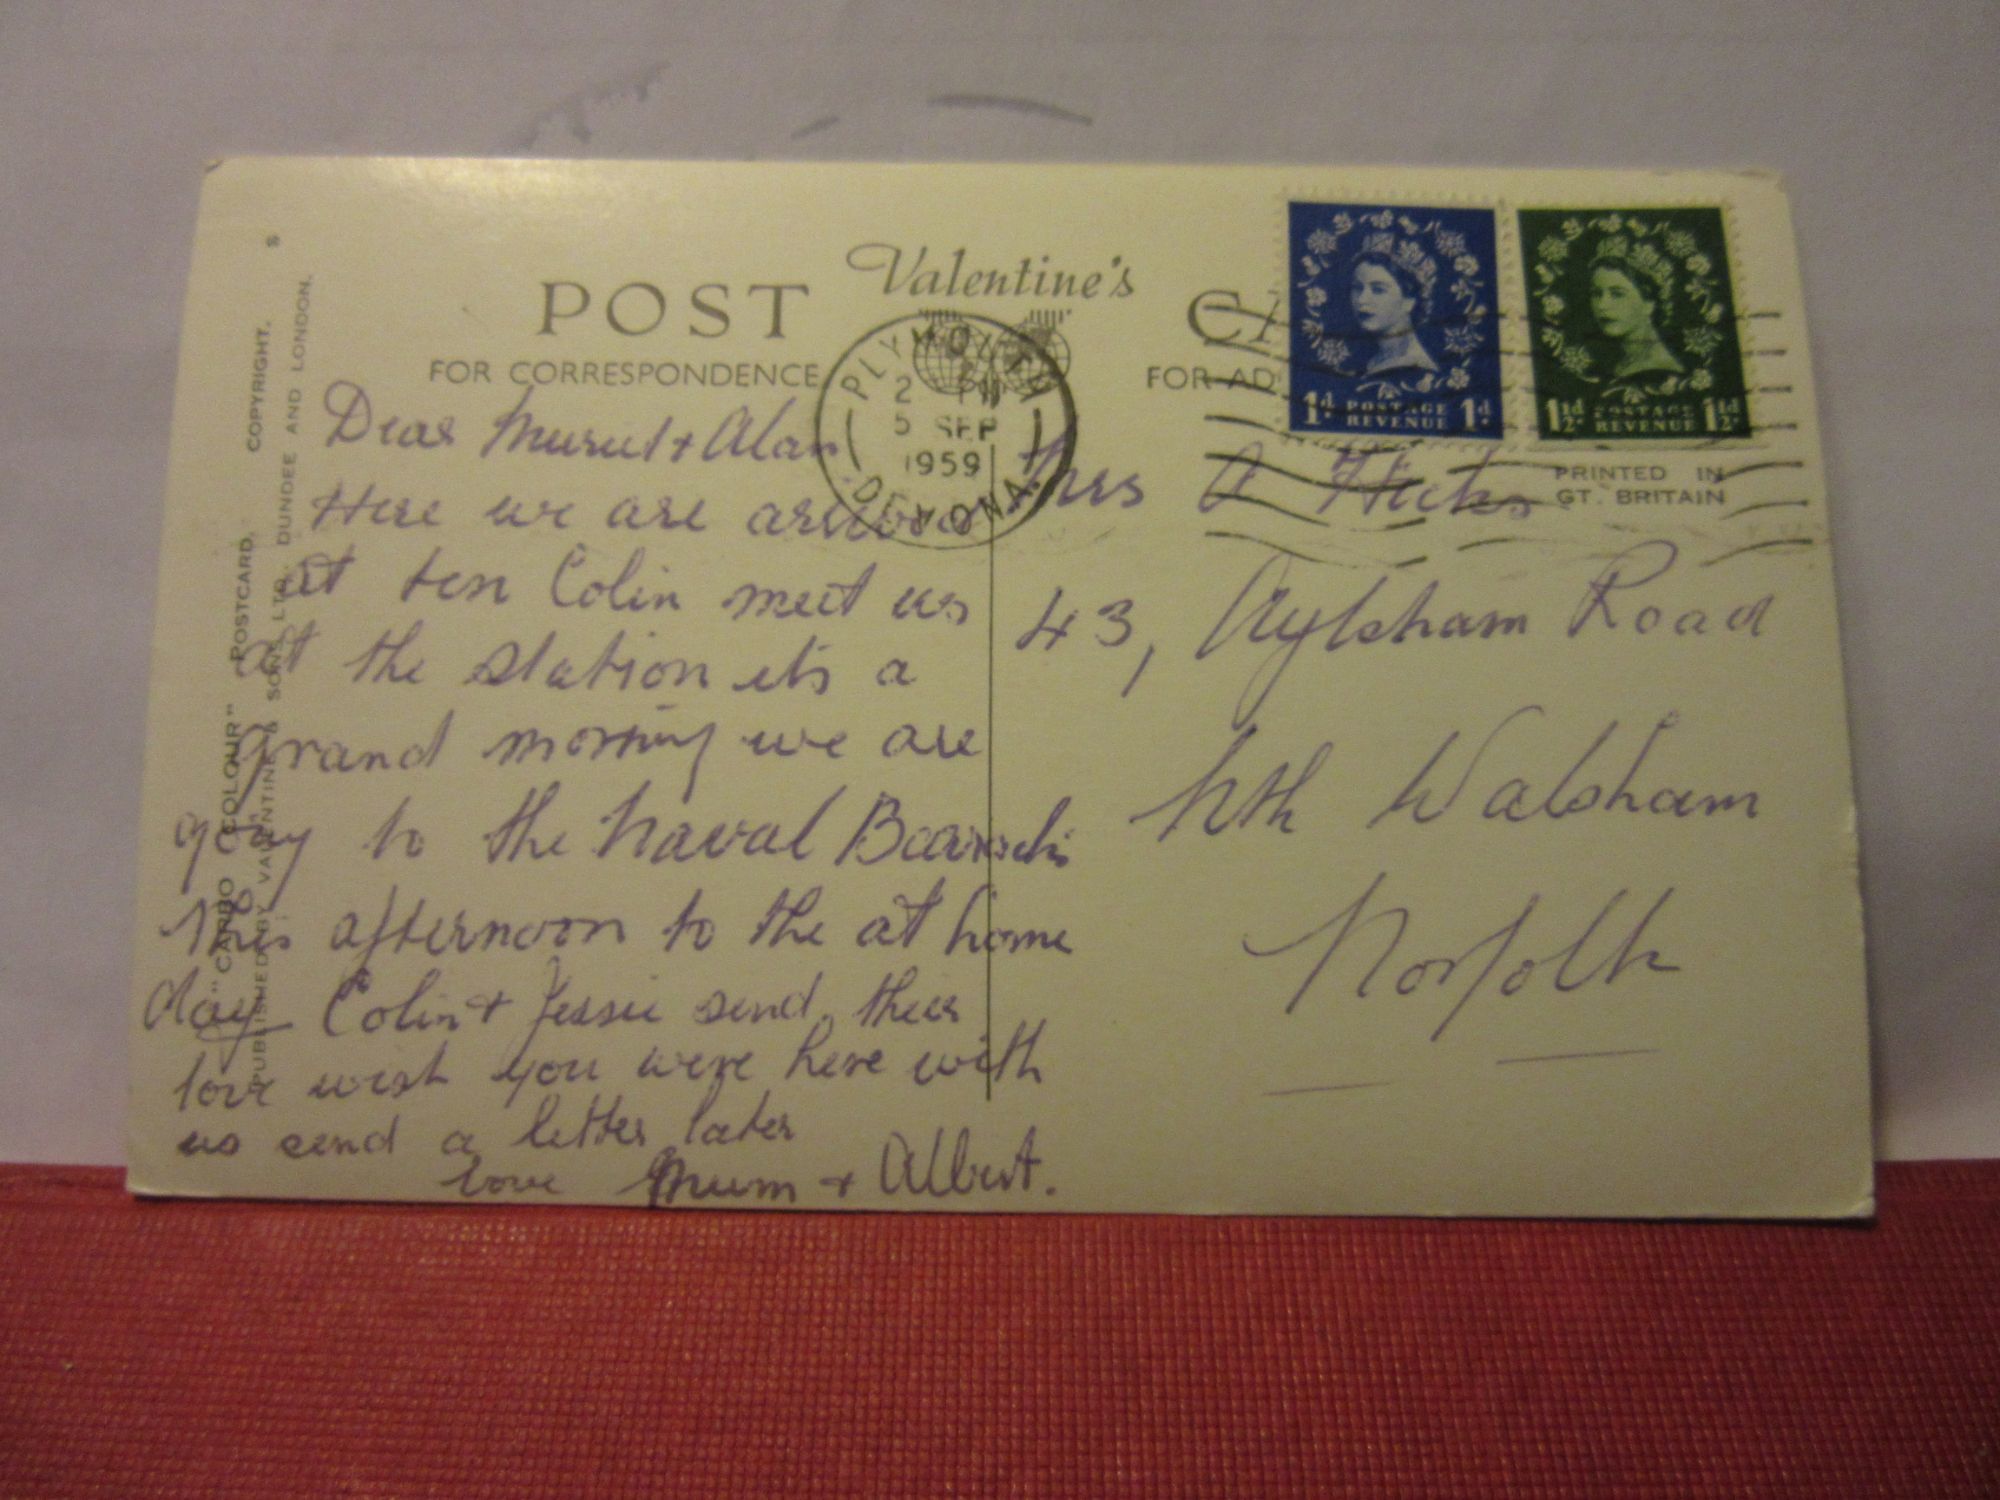 POST
Valentine's
CA
FOR CORRESPONDENCE
FOR AD
PLYMOUTH
2 PM
5 SEP
1959
DEVON
1d. POSTAGE REVENUE 1d.
1½d. POSTAGE REVENUE 1½d.
PRINTED IN
GT. BRITAIN
Dear Muriel + Alan
Here we are arrived
at ten Colin meet us
at the station its a
grand morning we are
going to the Naval
this afternoon to the at home
day Colin + Jessie send their
love wish you were here with
us send a letter later
love Mum + Albert.
Mrs A Hicks
43, Aylsham Road
Nth Walsham
Norfolk
"CARBO COLOUR" POSTCARD. COPYRIGHT. S
PUBLISHED BY VALENTINE & SONS, LTD., DUNDEE AND LONDON.